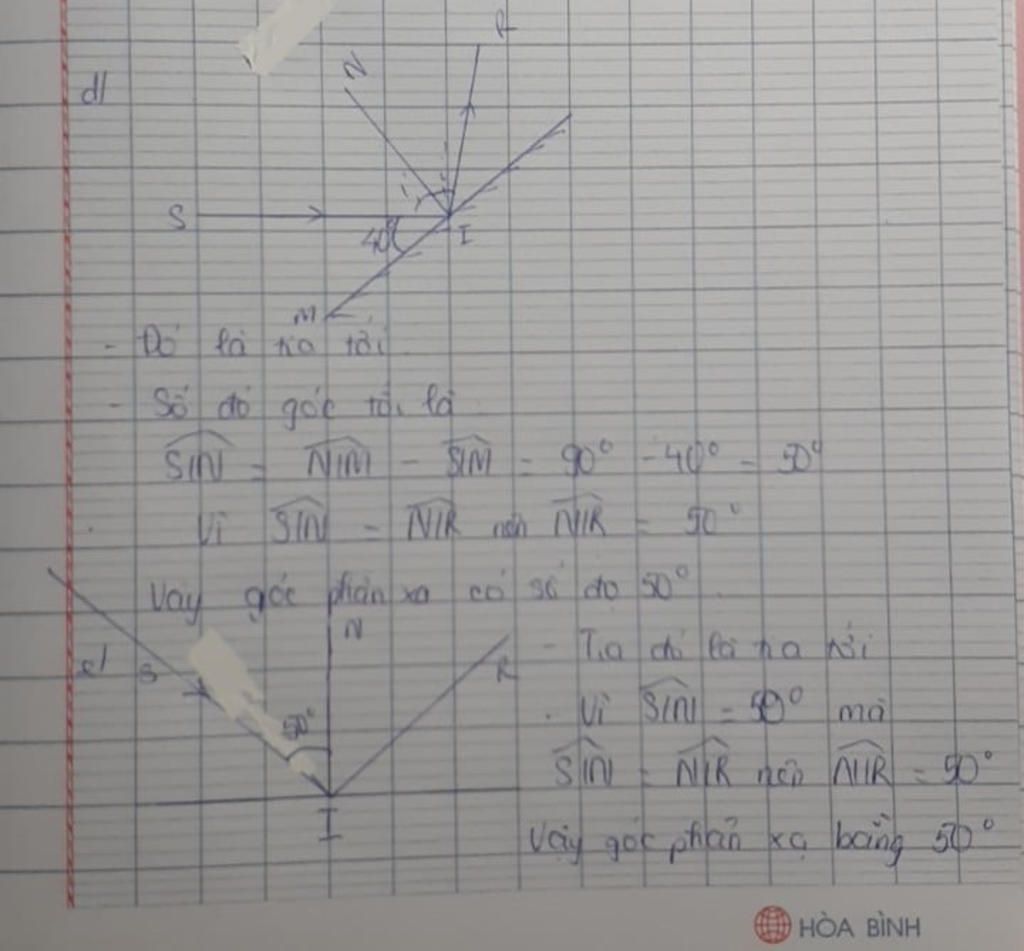 d/
N
R
S
40°
I
M
- Đó là tia tới
- Số đo góc tới là
SIN = NIM - SIM = 90° - 40° = 50°
Vì SIN = NIR nên NIR = 50°
Vậy góc phản xạ có số đo 50°
e/
S
N
R
50°
I
- Tia đó là tia tới
. Vì SIN = 50° mà
SIN = NIR nên NIR = 50°
Vậy góc phản xạ bằng 50°
HÒA BÌNH